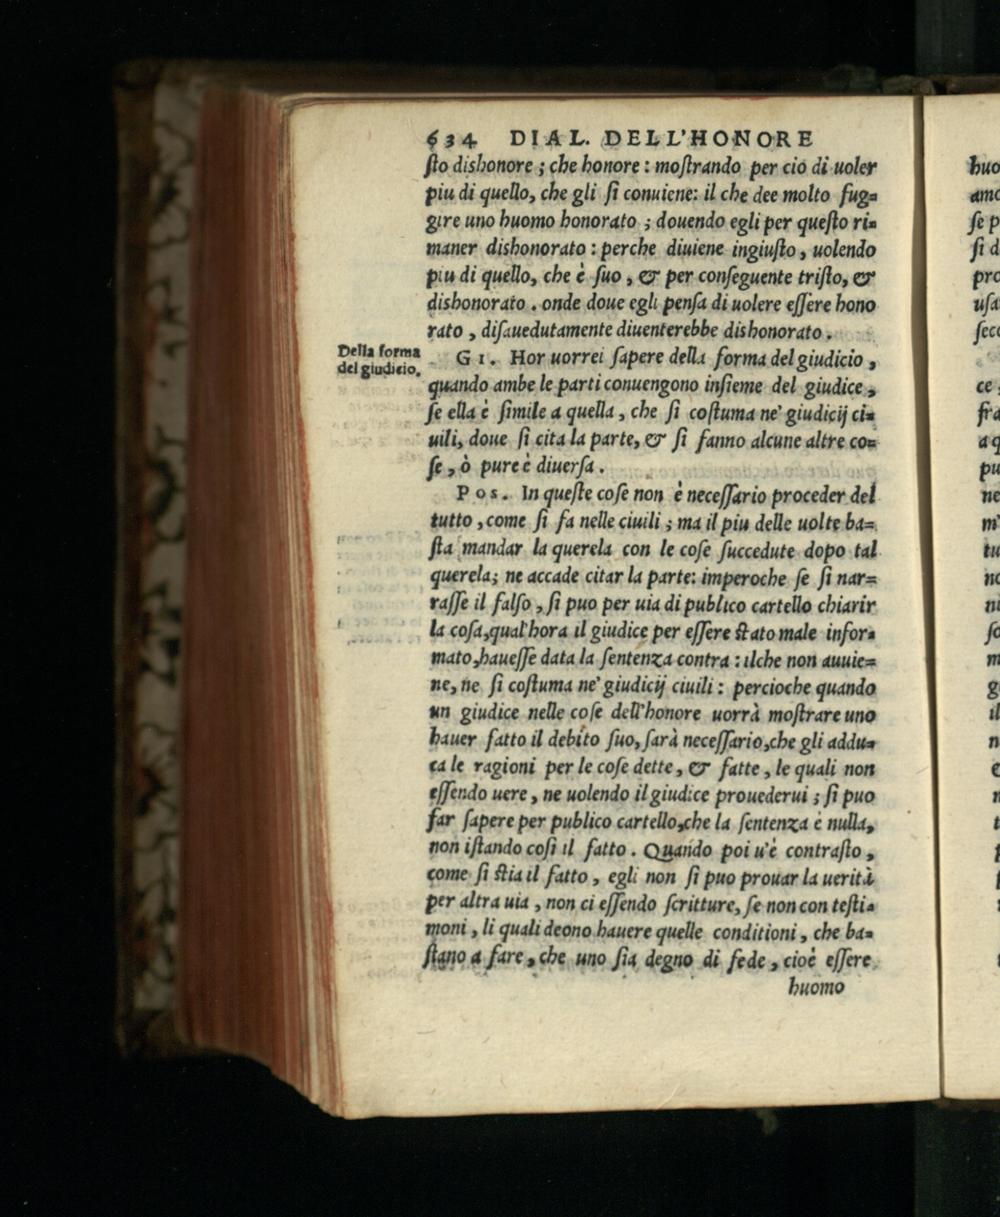 634 DIAL. DELL'HONORE
ſto dishonore ; che honore : moſtrando per cio di uoler
piu di quello, che gli ſi conuiene: il che dee molto fug=
gire uno huomo honorato ; douendo egli per queſto ri=
maner dishonorato : perche diuiene ingiuſto, uolendo
piu di quello, che è ſuo, & per conſeguente triſto, &
dishonorato . onde doue egli penſa di uolere eſſere hono
rato , diſauedutamente diuenterebbe dishonorato .
Della forma
del giudicio.
GI. Hor uorrei ſapere della forma del giudicio ,
quando ambe le parti conuengono inſieme del giudice ,
ſe ella è ſimile a quella , che ſi coſtuma ne' giudicij ci=
uili, doue ſi cita la parte, & ſi fanno alcune altre co=
ſe , ò pure è diuerſa .
Pos. In queſte coſe non è neceſſario proceder del
tutto , come ſi fa nelle ciuili ; ma il piu delle uolte ba=
ſta mandar la querela con le coſe ſuccedute dopo tal
querela; ne accade citar la parte: imperoche ſe ſi nar=
raſſe il falſo , ſi puo per uia di publico cartello chiarir
la coſa, qual'hora il giudice per eſſere ſtato male infor=
mato, haueſſe data la ſentenza contra : ilche non auuie=
ne, ne ſi coſtuma ne' giudicij ciuili : percioche quando
un giudice nelle coſe dell'honore uorrà moſtrare uno
hauer fatto il debito ſuo, ſarà neceſſario, che gli addu=
ca le ragioni per le coſe dette, & fatte , le quali non
eſſendo uere, ne uolendo il giudice prouederui ; ſi puo
far ſapere per publico cartello, che la ſentenza è nulla,
non iſtando coſi il fatto . Quando poi u'è contraſto ,
come ſi ſtia il fatto , egli non ſi puo prouar la uerità
per altra uia , non ci eſſendo ſcritture, ſe non con teſti=
moni , li quali deono hauere quelle conditioni , che ba=
ſtano a fare , che uno ſia degno di fede , cioè eſſere
huomo